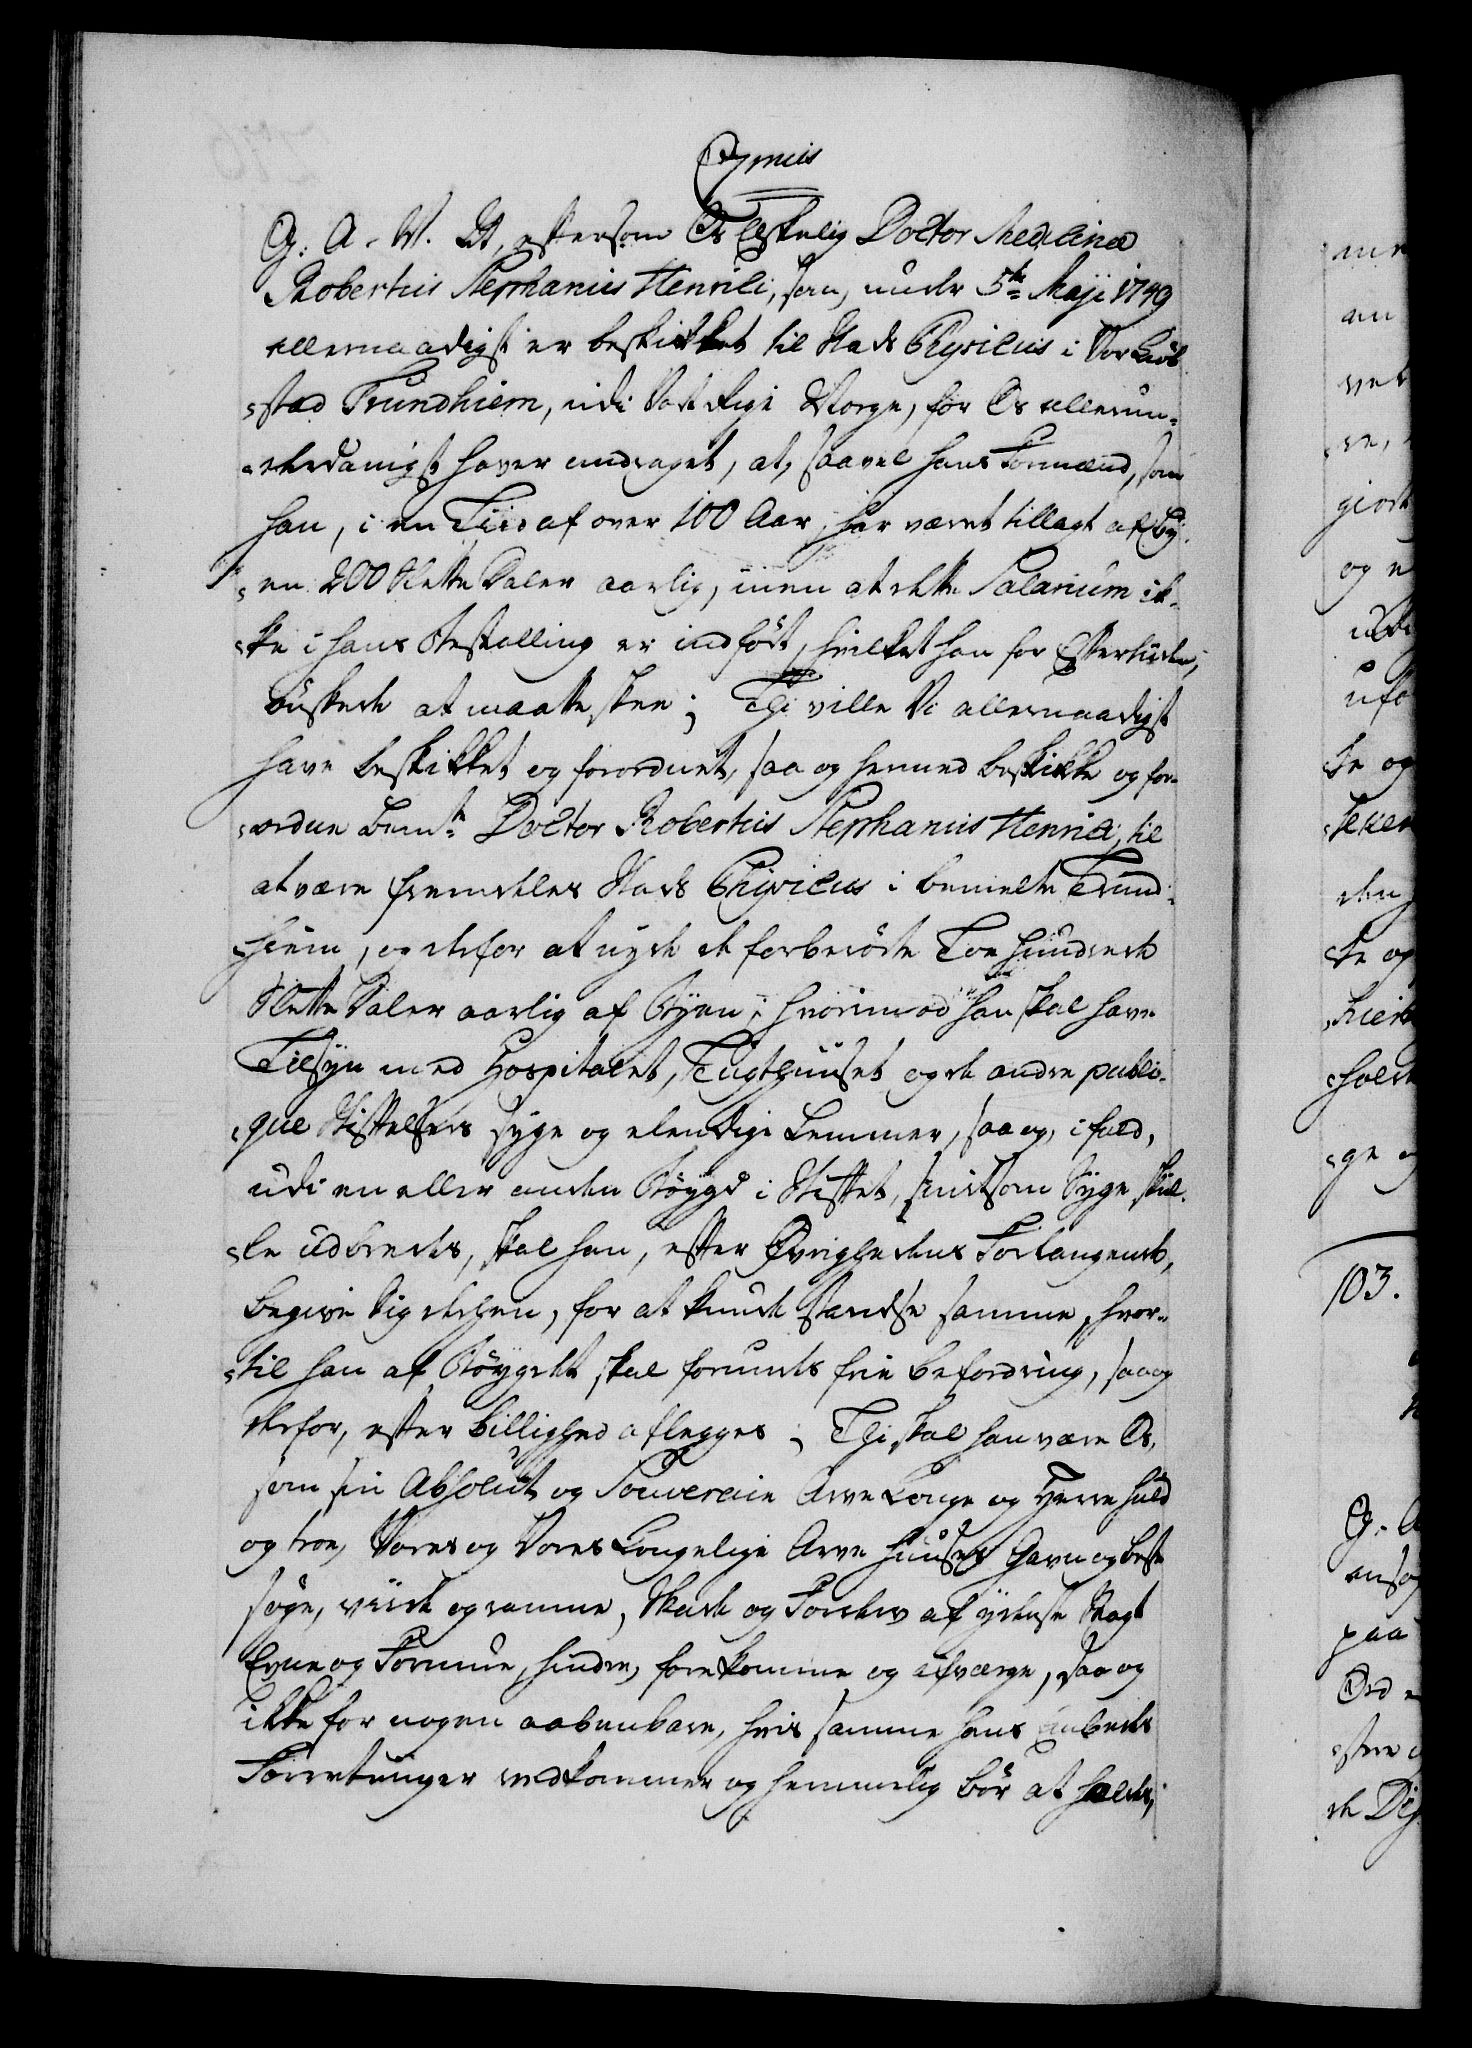 G. A. W. At, eftersom Os Elskelig Doctor Medicinæ
Robertus Stephanus Henrici, som, under 5te Maji 1749
allernaadigst er beskikket til Stads Physicus i Vor Kiöb-
stæd Trundhiem, udi Vort Rige Norge, for Os allerun-
derdanigst haver andraget, at, saavel hans Formænd, som
han, i en Tiid af over 100 Aar, har været tillagt af By-
en 200 Slette Daler aarlig, men at dette Salarium ik-
ke i hans Bestalling er indfört, hvilket han for Eftertiden,
önskede at maatte skee; Thi ville Vi allernaadigst
have beskikket og forordnet, saa og hermed beskikke og for-
ordne bemte Doctor Robertus Stephanus Henrici, til
at være fremdeles Stads Physicus i bemelte Trund-
hiem, og derfor at nyde de forberörte Toe Hundrede
Slette Daler aarlig af Byen; hvorimod han skal have
Tilsyn med Hospitalet, Tugthuuset og de andre publi-
que Stiftelsers syge og elendige Lemmer, saa og, ifald,
udi en eller anden Böygd i Stiftet, smitsom Syge skul-
le udbredes, skal han, efter Övrighedens Forlangende,
begive sig derhen, for at kunde standse samme, hvor-
til han af Böygdet skal forundes frie befordring, saa og
derfor, efter billighed aflegges; Thi skal han være Os,
som sin Absolut og Souveraine Arve Konge og Herre huld
og troe, Vores og Vores Kongelige Arve Huuses Gavn og beste
söge, viide og ramme, Skade og Forderv af yderste Magt
Evne og Formue, hindre, forekomme og afværge, saa og
ikke for nogen aabenbare, hvis samme hans Embeds
Forretninger vedkommer og hemmelig bör at holdes,
103.